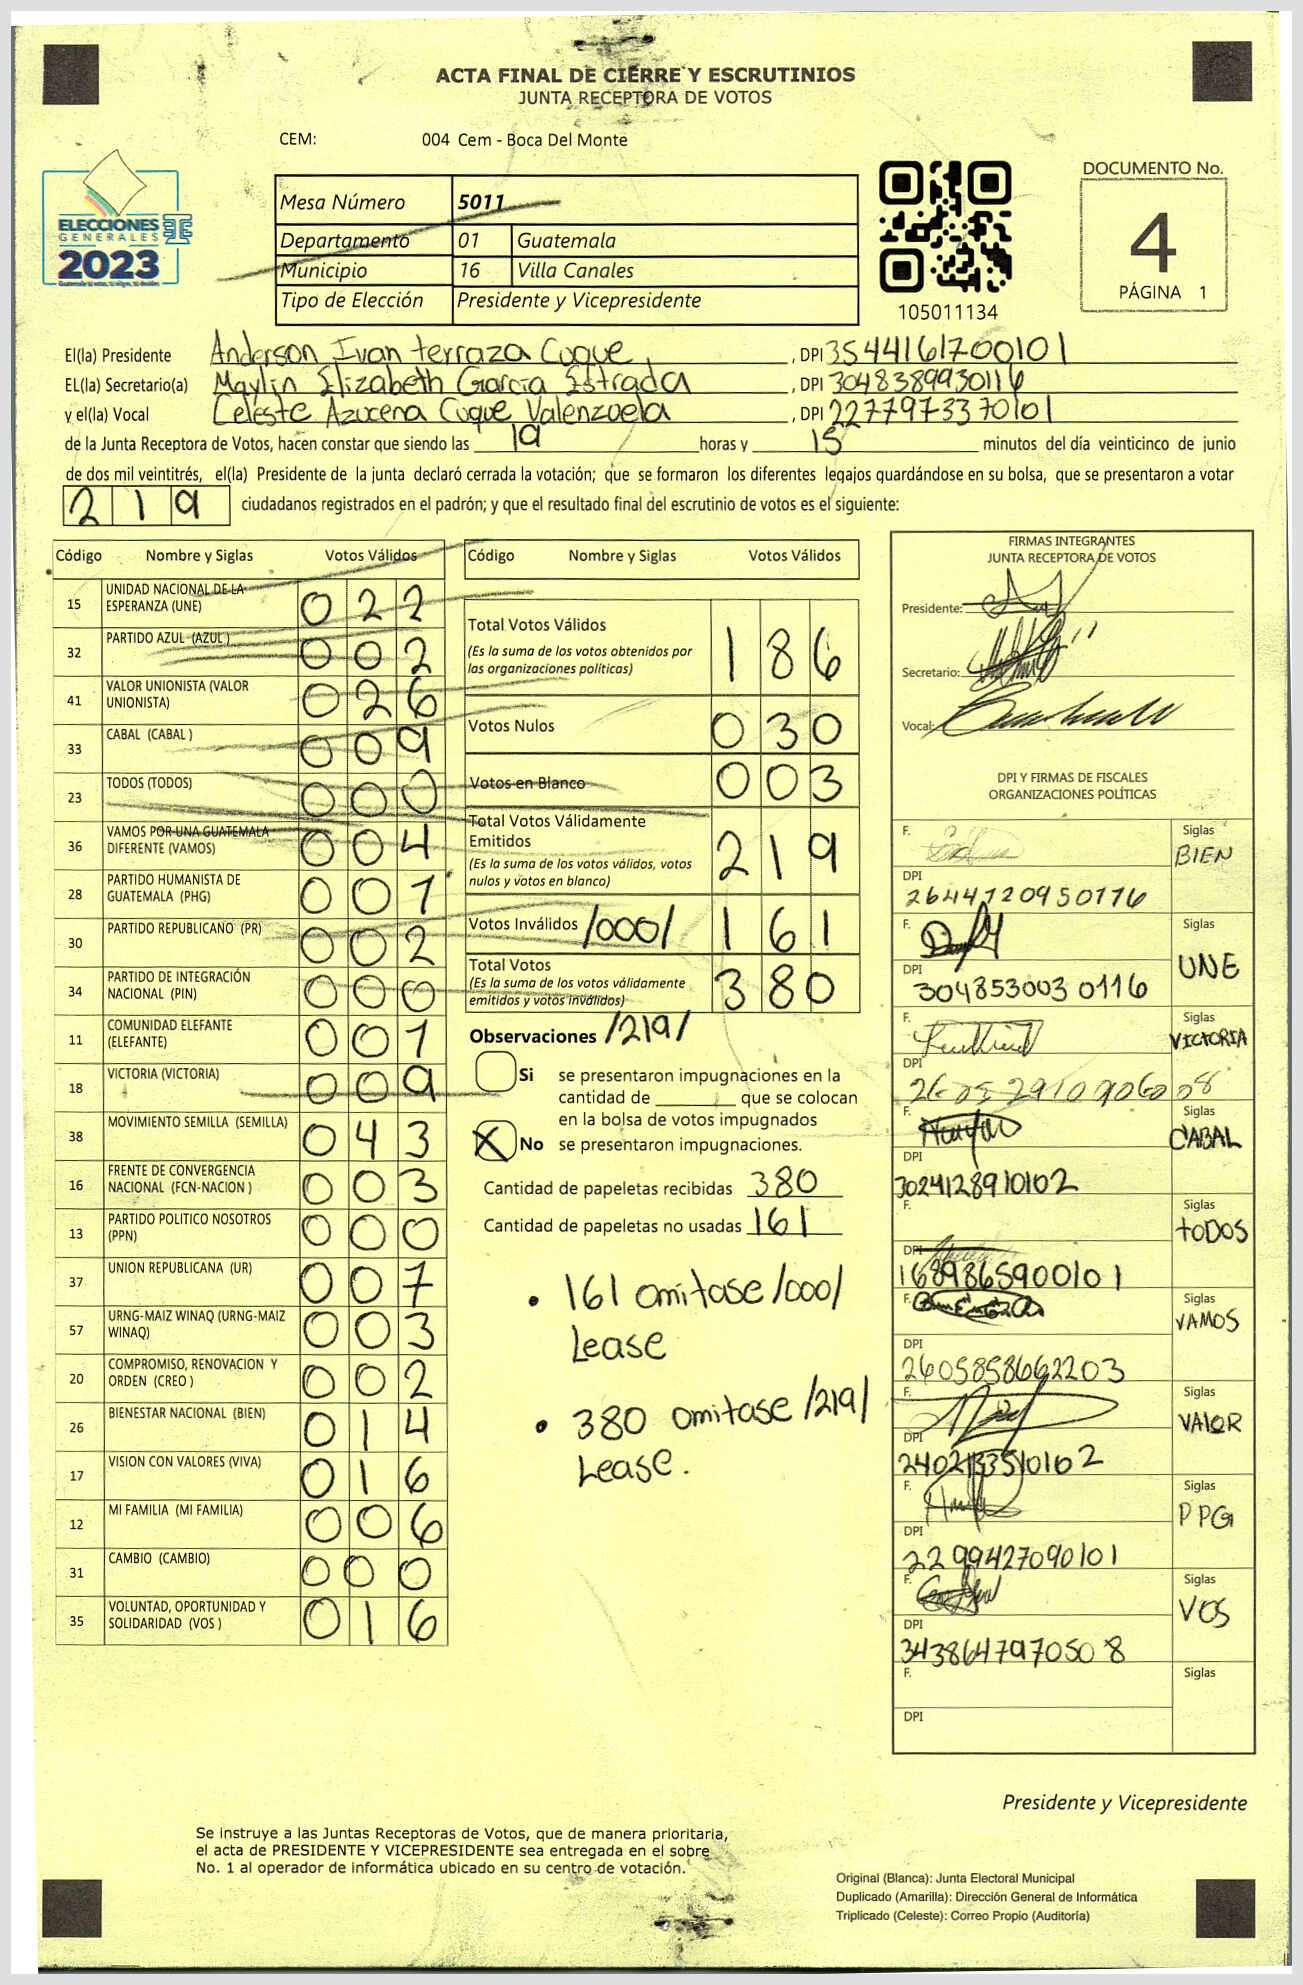 ACTA FINAL DE CIERRE Y ESCRUTINIOS
JUNTA RECEPTORA DE VOTOS
CEM: 004 Cem - Boca Del Monte
ELECCIONES
GENERALES
2023
Mesa Número 5011
Departamento 01 Guatemala
Municipio 16 Villa Canales
Tipo de Elección Presidente y Vicepresidente
105011134
DOCUMENTO No.
4
PÁGINA 1
El(la) Presidente Anderson Ivan terraza Cuque, DPI 3544161700101
EL(la) Secretario(a) Maylin Elizabeth García Estrada, DPI 3048389930116
y el(la) Vocal Celeste Azucena Cuque Valenzuela, DPI 2277973370101
de la Junta Receptora de Votos, hacen constar que siendo las 19 horas y 15 minutos del día veinticinco de junio
de dos mil veintitrés, el(la) Presidente de la junta declaró cerrada la votación; que se formaron los diferentes legajos guardándose en su bolsa, que se presentaron a votar
219 ciudadanos registrados en el padrón; y que el resultado final del escrutinio de votos es el siguiente:
Código Nombre y Siglas Votos Válidos
15 UNIDAD NACIONAL DE LA ESPERANZA (UNE) 022
32 PARTIDO AZUL (AZUL) 002
41 VALOR UNIONISTA (VALOR UNIONISTA) 026
33 CABAL (CABAL) 009
23 TODOS (TODOS) 000
36 VAMOS POR UNA GUATEMALA DIFERENTE (VAMOS) 004
28 PARTIDO HUMANISTA DE GUATEMALA (PHG) 001
30 PARTIDO REPUBLICANO (PR) 002
34 PARTIDO DE INTEGRACIÓN NACIONAL (PIN) 000
11 COMUNIDAD ELEFANTE (ELEFANTE) 001
18 VICTORIA (VICTORIA) 009
38 MOVIMIENTO SEMILLA (SEMILLA) 043
16 FRENTE DE CONVERGENCIA NACIONAL (FCN-NACION) 003
13 PARTIDO POLITICO NOSOTROS (PPN) 000
37 UNION REPUBLICANA (UR) 007
57 URNG-MAIZ WINAQ (URNG-MAIZ WINAQ) 003
20 COMPROMISO, RENOVACION Y ORDEN (CREO) 002
26 BIENESTAR NACIONAL (BIEN) 014
17 VISION CON VALORES (VIVA) 016
12 MI FAMILIA (MI FAMILIA) 006
31 CAMBIO (CAMBIO) 000
35 VOLUNTAD, OPORTUNIDAD Y SOLIDARIDAD (VOS) 016
Código Nombre y Siglas Votos Válidos
Total Votos Válidos 186
(Es la suma de los votos obtenidos por
las organizaciones políticas)
Votos Nulos 030
Votos en Blanco 003
Total Votos Válidamente
Emitidos 219
(Es la suma de los votos válidos, votos
nulos y votos en blanco)
Votos Inválidos /000/ 161
Total Votos 380
(Es la suma de los votos válidamente
emitidos y votos inválidos)
Observaciones /219/
Si se presentaron impugnaciones en la
cantidad de ________ que se colocan
en la bolsa de votos impugnados
X No se presentaron impugnaciones.
Cantidad de papeletas recibidas 380
Cantidad de papeletas no usadas 161
• 161 omitase /000/
Lease
• 380 omitase /219/
Lease.
FIRMAS INTEGRANTES
JUNTA RECEPTORA DE VOTOS
Presidente:
Secretario:
Vocal:
DPI Y FIRMAS DE FISCALES
ORGANIZACIONES POLÍTICAS
F. Siglas BIEN
DPI 2644720950116
F. Siglas UNE
DPI 3048530030116
F. Siglas VICTORIA
DPI
F. Siglas CABAL
DPI 3024128910102
F. Siglas TODOS
DPI 1689865900101
F. Siglas VAMOS
DPI 2605858662203
F. Siglas VALOR
DPI 2402133510102
F. Siglas PPG
DPI 2299427090101
F. Siglas VOS
DPI 3438647970508
F. Siglas
DPI
Presidente y Vicepresidente
Se instruye a las Juntas Receptoras de Votos, que de manera prioritaria,
el acta de PRESIDENTE Y VICEPRESIDENTE sea entregada en el sobre
No. 1 al operador de informática ubicado en su centro de votación.
Original (Blanca): Junta Electoral Municipal
Duplicado (Amarilla): Dirección General de Informática
Triplicado (Celeste): Correo Propio (Auditoría)